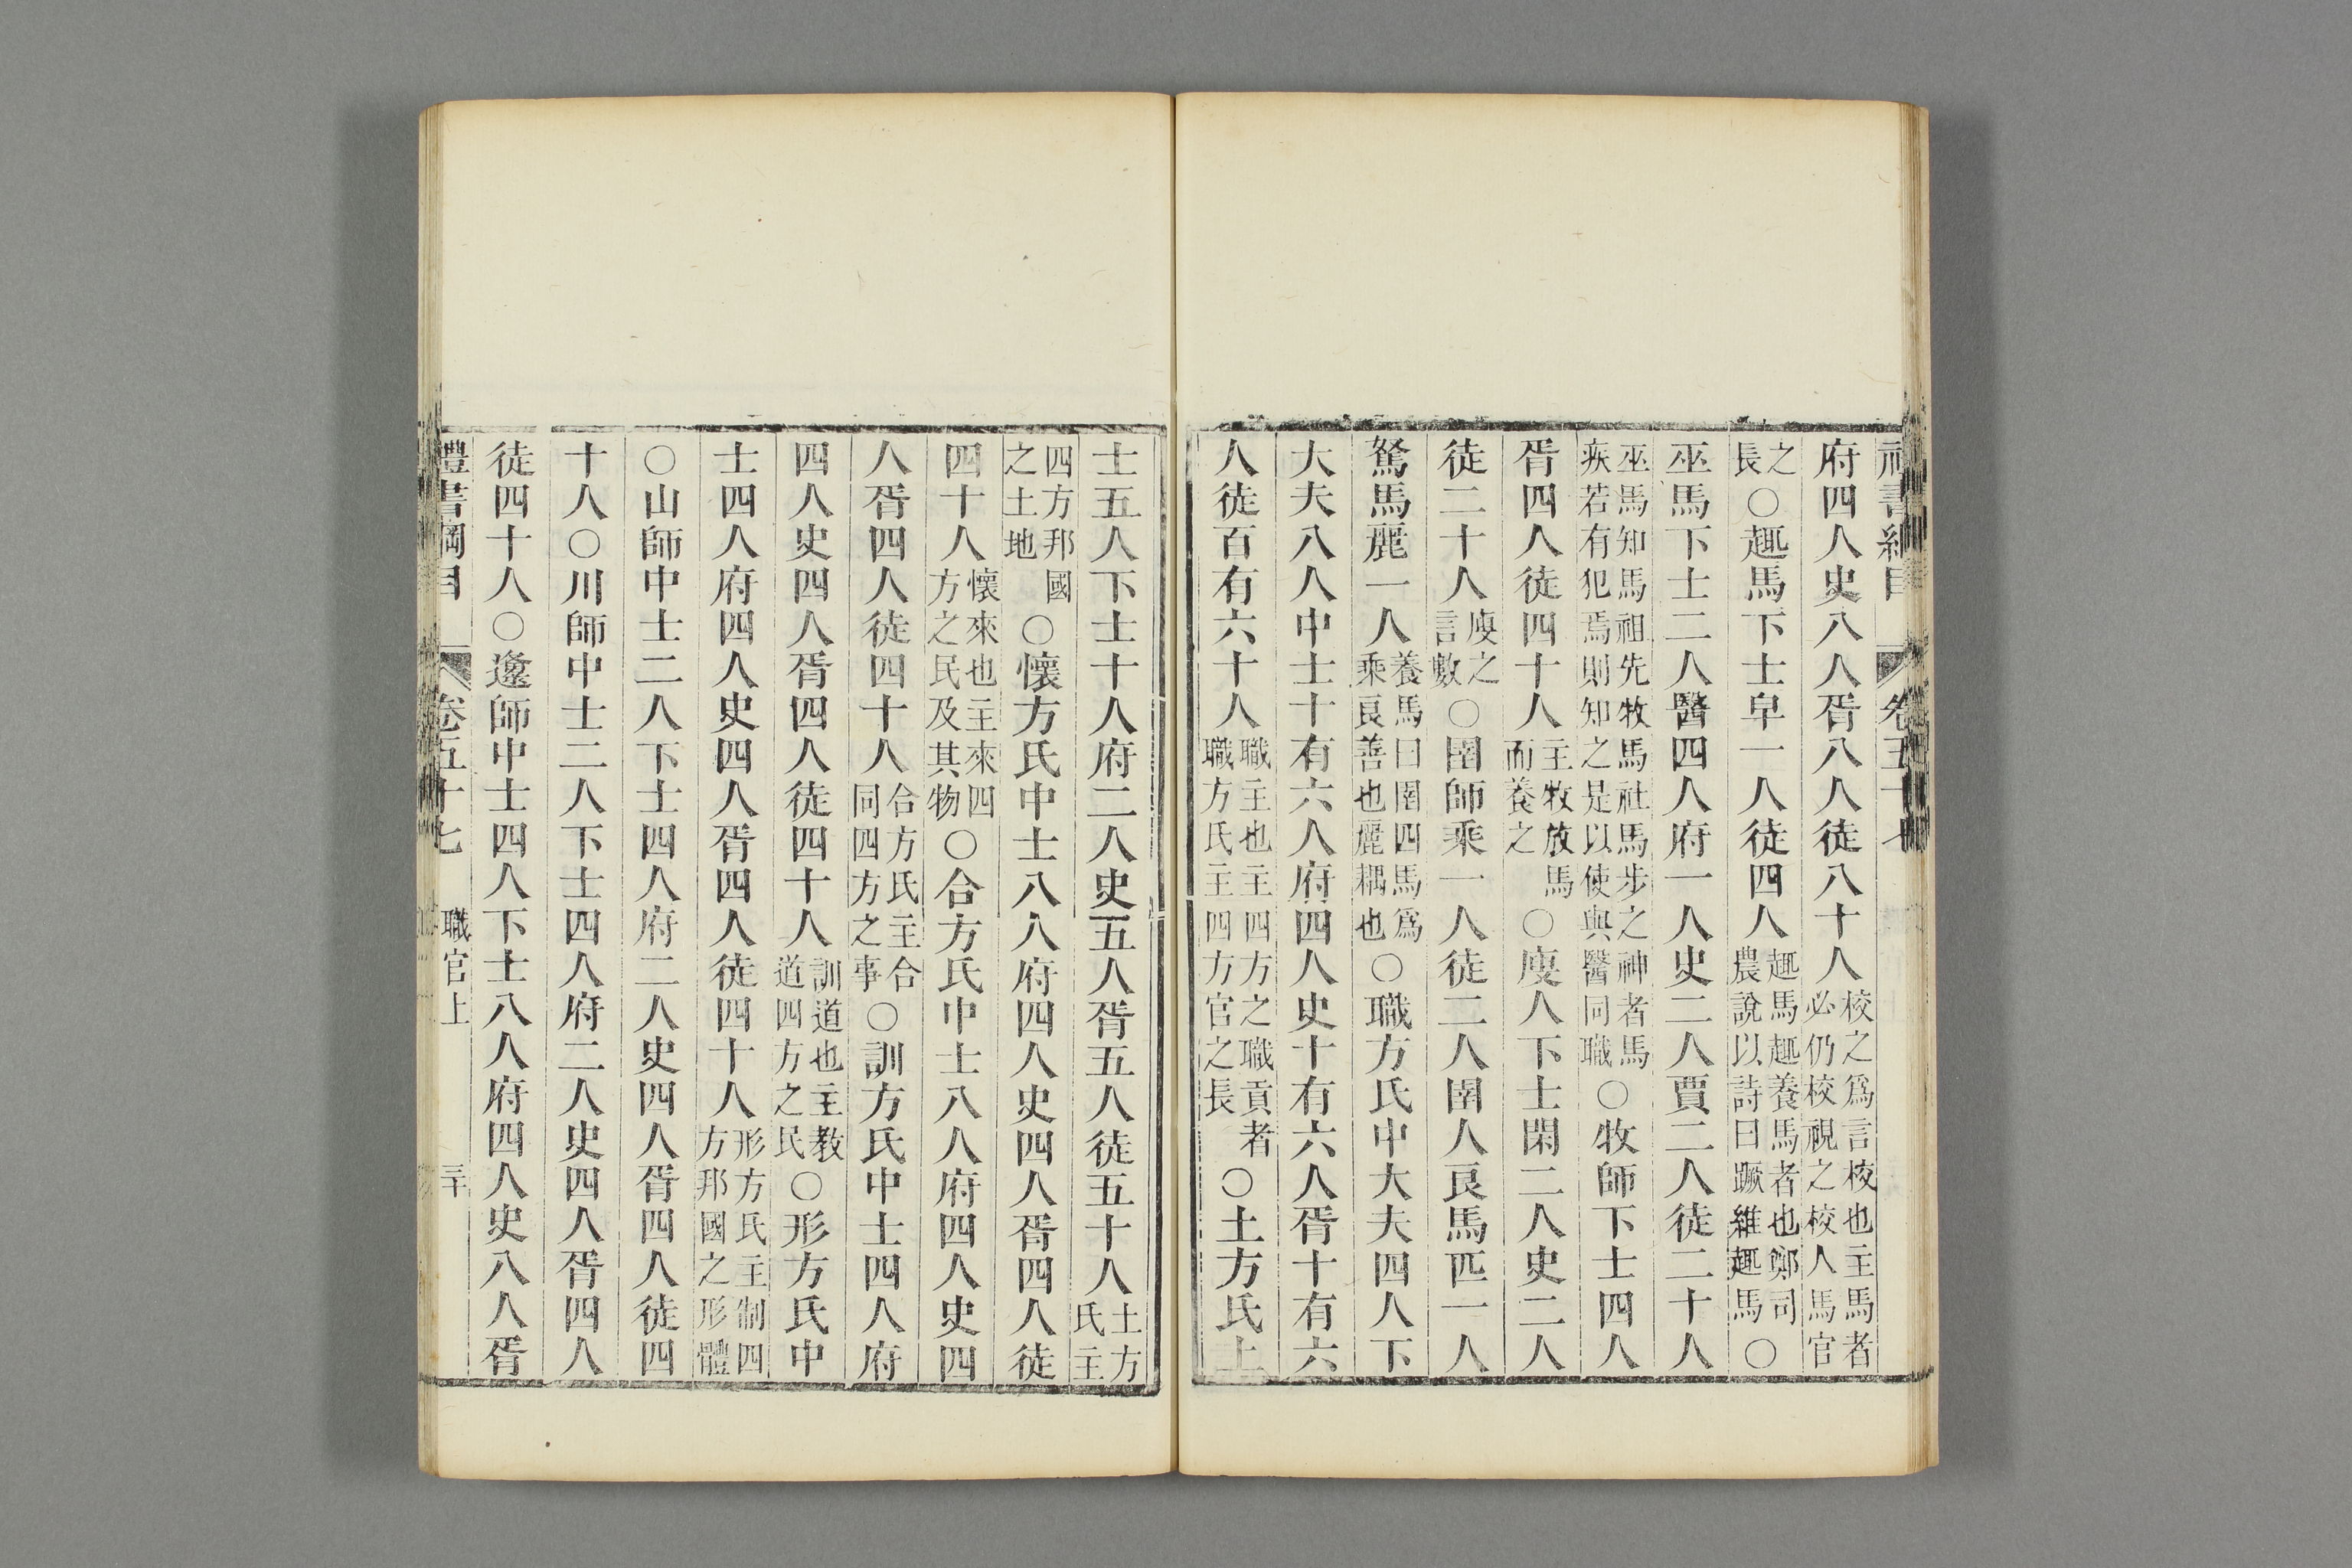 府四人史八人胥八人徒八十人校之爲言校也主馬者必仍校視之校人馬官
之長○趣馬下士皁一人徒四人趣馬趣養馬者也鄭司農說以詩曰蹶維趣馬○
巫馬下士二人醫四人府一人史二人賈二人徒二十人
巫馬知馬祖先牧馬社馬步之神者馬疾若有犯焉則知之是以使與醫同職○牧師下士四人
胥四人徒四十人主牧放馬而養之○廋人下士閑二人史二人
徒二十人廋之言數○圉師乘一人徒二人圉人良馬匹一人
駑馬麗一人養馬曰圉四馬爲乘良善也麗耦也○職方氏中大夫四人下
大夫八人中士十有六人府四人史十有六人胥十有六
人徒百有六十人職主也主四方之職貢者職方氏主四方官之長○土方氏上
士五人下士十人府二人史五人胥五人徒五十人土方氏主
四方邦國之土地○懷方氏中士八人府四人史四人胥四人徒
四十人懷來也主來四方之民及其物○合方氏中士八人府四人史四
人胥四人徒四十人合方氏主合同四方之事○訓方氏中士四人府
四人史四人胥四人徒四十人訓道也主教道四方之民○形方氏中
士四人府四人史四人胥四人徒四十人形方氏主制四方邦國之形體
○山師中士二人下士四人府二人史四人胥四人徒四
十人○川師中士二人下士四人府二人史四人胥四人
徒四十人○邍師中士四人下士八人府四人史八人胥
禮書綱目 卷五十七 職官上 三十